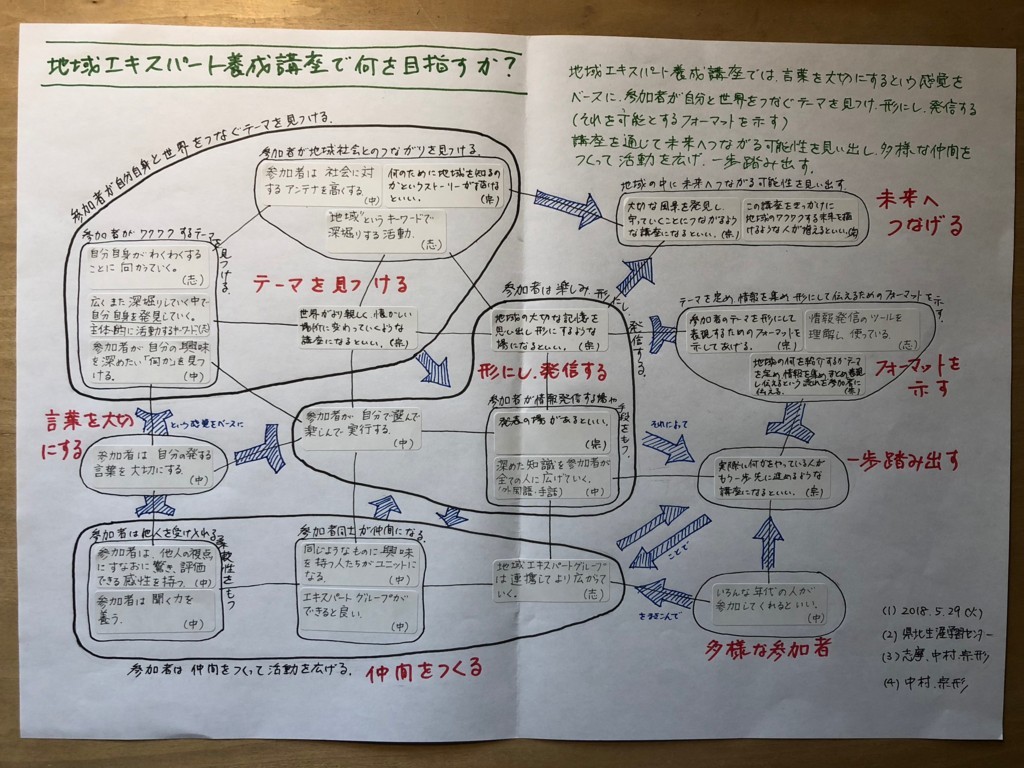 地域エキスパート養成講座で何を目指すか?
地域エキスパート養成講座では、言葉を大切にするという感覚を
ベースに、参加者が自分と世界をつなぐテーマを見つけ、形にし、発信する
(それを可能とするフォーマットを示す)
講座を通して未来へつながる可能性を見い出し、多様な仲間を
つくって活動を広げ、一歩踏み出す。
参加者が自分自身と世界をつなぐテーマを見つける。
参加者が地域社会とのつながりを見つける。
参加者は 社会に対する
アンテナを高くする。 (中)
何のために地域を知るの
かというストーリーが描けると
いい。 (宗)
"地域"というキーワードで
深堀りする活動。
(志)
参加者が ワクワクするテーマを見つける。
自分自身がわくわくする
ことに 向かっていく。
(志)
広くまた深堀りしていく中で
自分自身を発見していく。
主体的に活動するキーワード(志)
参加者が 自分の興味
を深めたい「何か」を見つ
ける。 (中)
テーマを見つける
世界がより親しく、懐かしい
場所に変わっていくような
講座になるといい。 (宗)
地域の中に未来へつながる可能性を見い出す。
大切な風景を発見し、
守っていくことにつながるよう
な講座になるといい。(宗)
この講座をきっかけに
地域のワクワクする未来を描
けるような人が増えるといい。
未来へ
つなげる
参加者は楽しみ、形にし、発信する。
地域の大切な記憶を
思い出し形にするような
場になるといい。 (宗)
形にし、発信する
参加者が情報発信する場や手段をもつ。
発表の場があるといい。
(宗)
深めた知識を参加者が
全ての人に広げていく。
(外国語・手話) (中)
参加者が 自分で選んで
楽しんで実行する。
(中)
テーマを定め、情報を集め 形にして伝えるためのフォーマットを示す。
参加者のテーマを形にして
表現するためのフォーマットを
示してあげる。 (宗)
情報発信のツールを
理解し、使っている。
(志)
地域の何を紹介するかテーマ
を定め、情報を集め、まとめ表現
し伝えるという流れを参加者に
伝える。 (宗)
フォーマットを
示す
言葉を大切
にする
という感覚をベースに
参加者は 自分の発する
言葉を大切にする。
(中)
それによって
実際に何かをやっている人が
もう一歩 先に進めるような
講座になるといい。(宗)
一歩踏み出す
参加者は他人を受け入れる柔軟性をもつ
参加者は、他人の視点
にすなおに驚き、評価
できる感性を持つ。 (中)
参加者は 聞く力を
養う。 (中)
参加者同士が仲間になる。
同じようなものに興味
を持つ人たちがユニットに
なる。 (中)
エキスパートグループが
できると良い。 (中)
地域エキスパートグループ
は連携してより広がって
いく。 (志)
ことで
を巻きこんで
いろんな年代の人が
参加してくれるといい。
(中)
多様な参加者
参加者は 仲間をつくって活動を広げる。
仲間をつくる
(1) 2018.5.29(火)
(2) 県北生涯学習センター
(3) 志摩、中村、宗形
(4) 中村、宗形